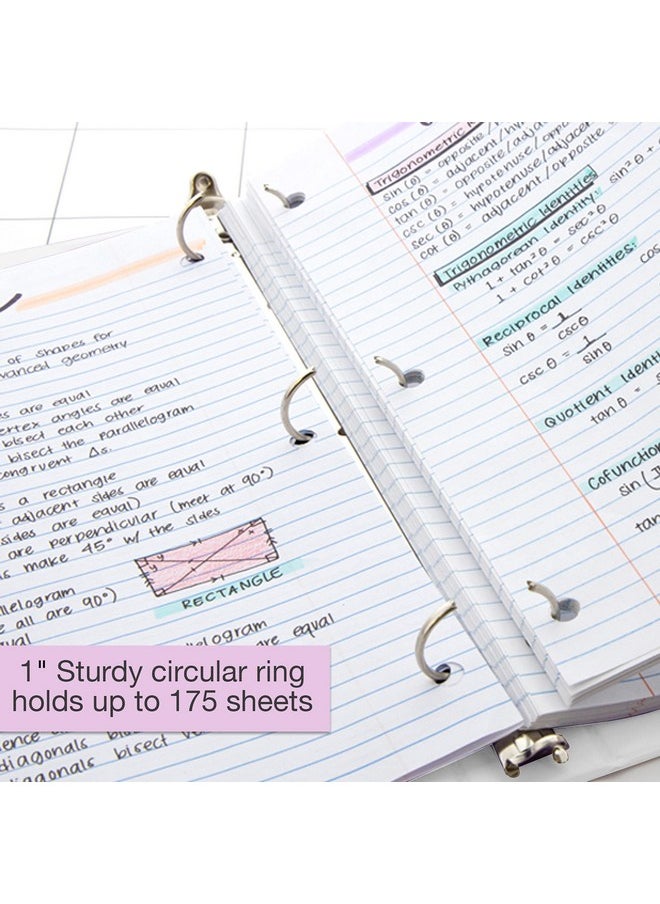 of shapes for
geometry
are equal
angles are equal
bisect each other
bisect the parallelogram
congruent Δs.
a rectangle
adjacent sides are equal
sides are equal)
are perpendicular (meet at 90°)
make 45° w/ the sides
RECTANGLE
all are 90°)
are equal
1" Sturdy circular ring
holds up to 175 sheets
diagonals
diagonals bisect
Trigonometric
sin (θ) = opposite/
cos (θ) = adjacent/
tan (θ) = opposite/
csc (θ) = hypotenuse/opposite
sec (θ) = hypotenuse/adjacent
cot (θ) = adjacent/opposite
Trigonometric Identities
Pythagorean Identity:
sin²θ +
1 + tan²θ = sec²θ
1 + cot²θ = csc²θ
Reciprocal Identities:
sin θ = 1/cscθ
csc θ = 1/sinθ
cos
Quotient
tan θ =
sin
tan